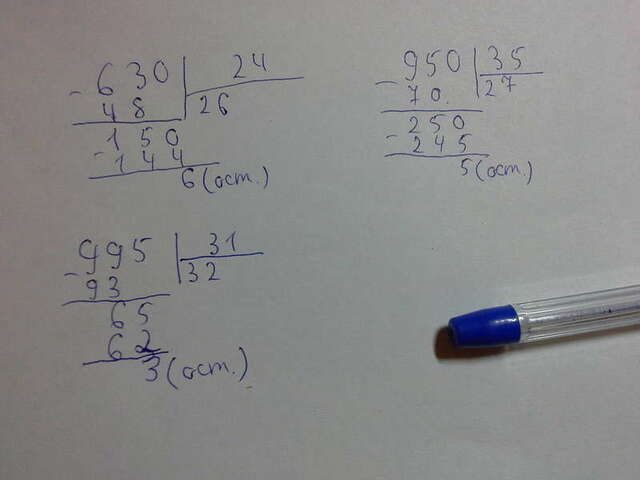 - 630 | 24
48 | 26
150
- 144
6 (ост.)
- 950 | 35
70. | 27
250
- 245
5 (ост.)
- 995 | 31
93 | 32
65
62
3 (ост.)